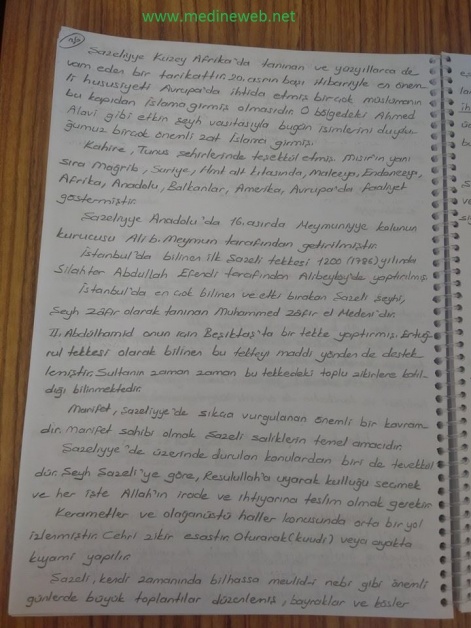 www.medineweb.net
Şazeliyye Kuzey Afrika'da tanınan ve yüzyıllarca de-
vam eden bir tarikattır. 20. asrın başı itibariyle en önem-
li hususiyeti Avrupa'da ihtida etmiş birçok müslümanın
bu kapıdan İslama girmiş olmasıdır. O bölgedeki Ahmed
Alavi gibi etkin şeyh vasıtasıyla bugün isimlerini duydu-
ğumuz birçok önemli zat İslama girmiş.
Kahire, Tunus şehirlerinde teşekkül etmiş. Mısır'ın yanı
sıra Mağrib, Suriye, Hint alt kıtasında, Malezya, Endonezya,
Afrika, Anadolu, Balkanlar, Amerika, Avrupa'da faaliyet
göstermiştir.
Şazeliyye Anadolu'da 16. asırda Meymuniyye kolunun
kurucusu Ali b. Meymun tarafından getirilmiştir.
İstanbul'da bilinen ilk Şazeli tekkesi 1200 (1786) yılında
Silahtar Abdullah Efendi tarafından Alibeyköy'de yaptırılmış.
İstanbul'da en çok bilinen ve etki bırakan Şazeli şeyhi,
Şeyh Zâfir olarak tanınan Muhammed Zâfir el Medeni'dir.
II. Abdülhamid onun için Beşiktaş'ta bir tekke yaptırmış. Ertuğ-
rul tekkesi olarak bilinen bu tekkeyi maddi yönden de destek-
lemiştir. Sultanın zaman zaman bu tekkedeki toplu zikirlere katıl-
dığı bilinmektedir.
Marifet, Şazeliyye'de sıkça vurgulanan önemli bir kavram-
dır. Marifet sahibi olmak Şazeli saliklerin temel amacıdır.
Şazeliyye'de üzerinde durulan konulardan biri de tevekkül
dür. Şeyh Şazeli'ye göre, Resulullah'a uyarak kulluğu seçmek
ve her işte Allah'ın irade ve ihtiyarına teslim olmak gerekir.
Kerametler ve olağanüstü haller konusunda orta bir yol
izlenmiştir. Cehri zikir esastır. Oturarak (kuudi) veya ayakta
kıyami yapılır.
Şazeli, kendi zamanında bilhassa mevlid-i nebi gibi önemli
günlerde büyük toplantılar düzenlemiş, bayraklar ve